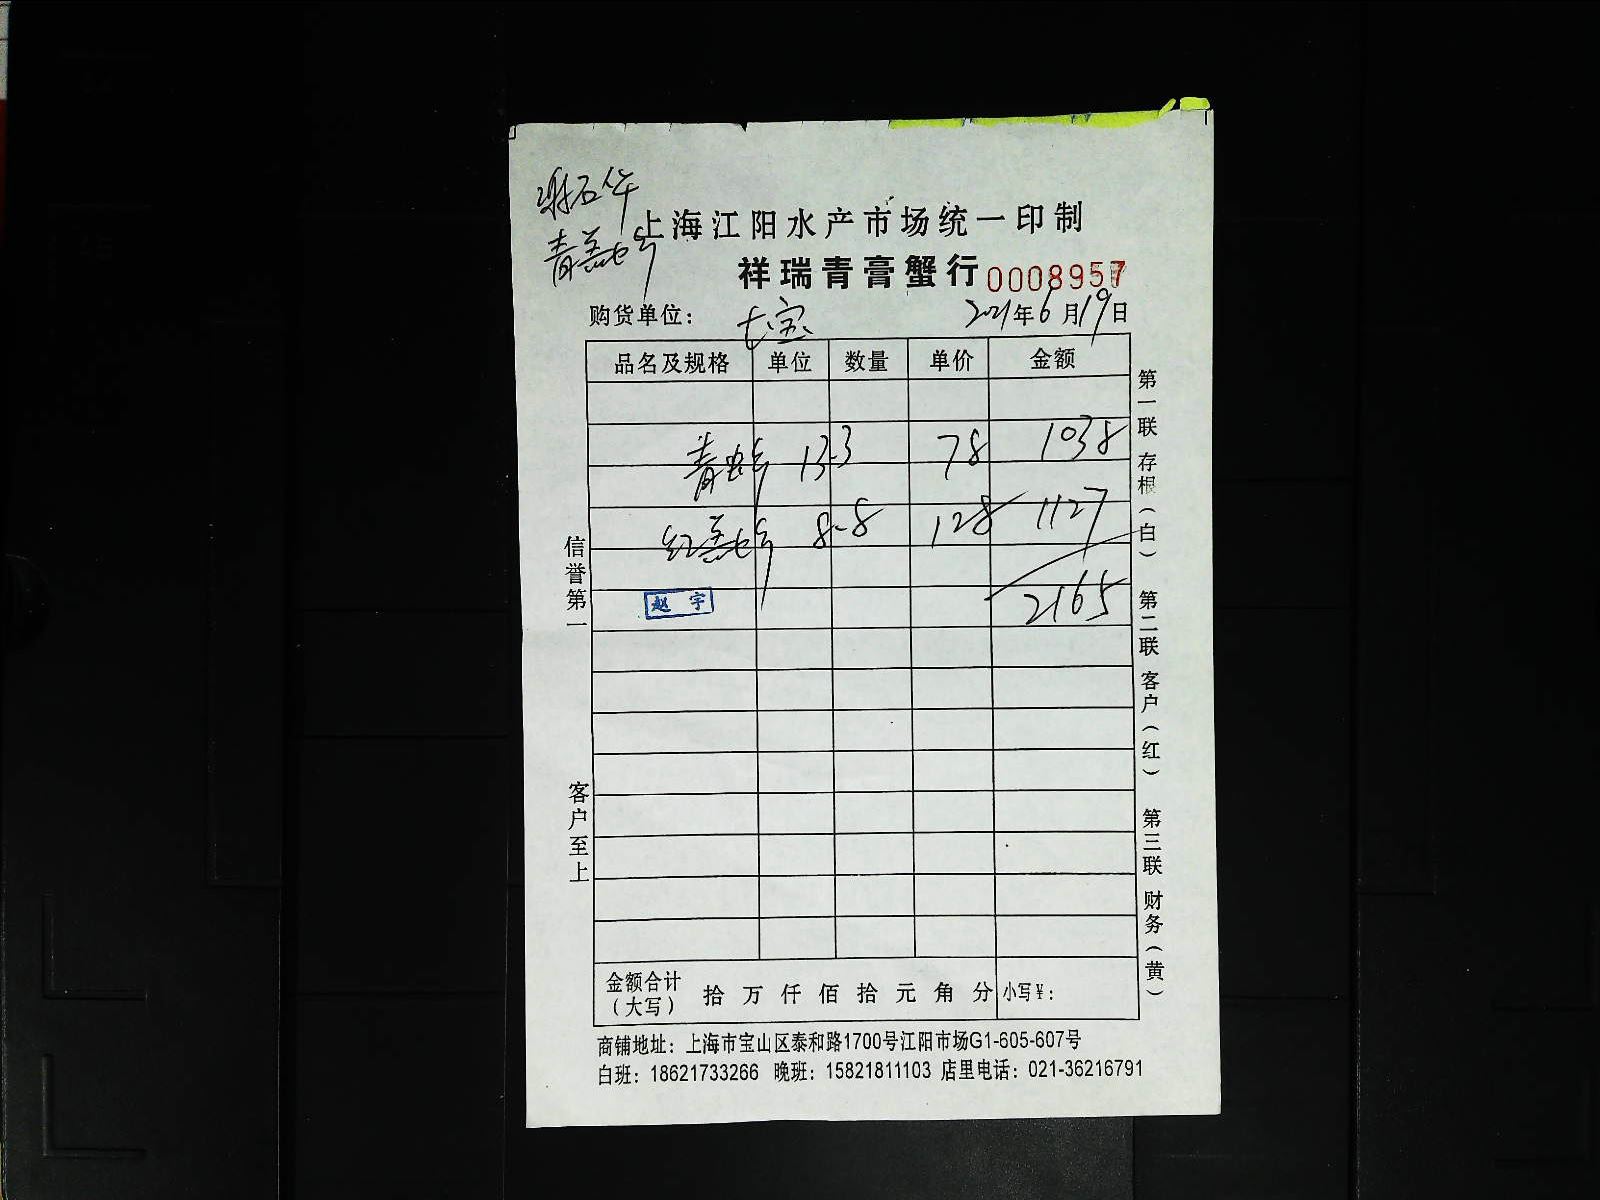 上海江阳水产市场统一印制
祥瑞青膏蟹行 0008957
购货单位： 长宝 2021年6月19日
品名及规格 单位 数量 单价 金额
青 13-3 78 1038
红 8-8 128 1127
赵宇 2165
信誉第一
客户至上
第一联 存根（白） 第二联 客户（红） 第三联 财务（黄）
金额合计（大写） 拾 万 仟 佰 拾 元 角 分 小写¥：
商铺地址：上海市宝山区泰和路1700号江阳市场G1-605-607号
白班：18621733266 晚班：15821811103 店里电话：021-36216791